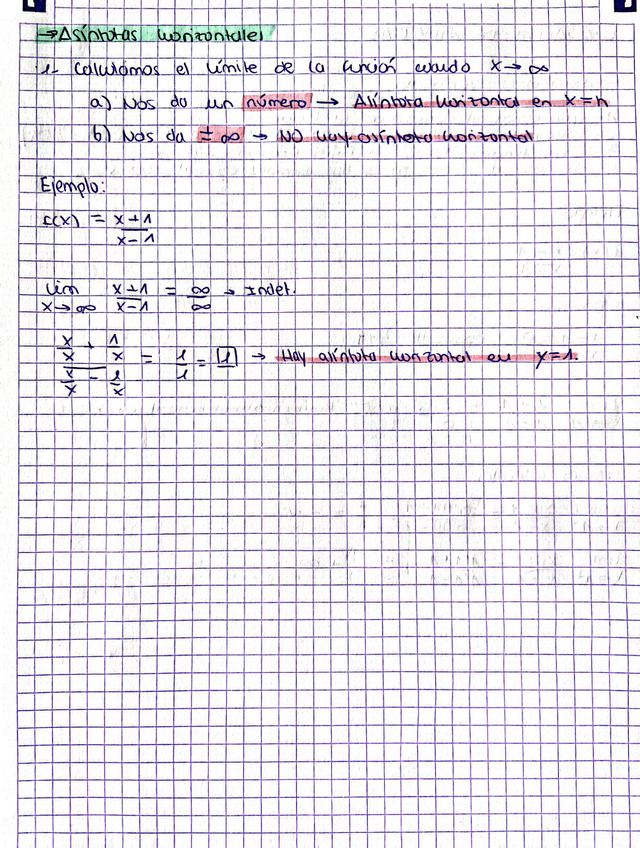 →Asíntotas horizontales
1- Calculamos el límite de la función cuando x→∞
a) Nos da un número → Asíntota horizontal en x=n
b) Nos da ±∞ → NO hay asíntota horizontal
Ejemplo:
f(x) = x+1 / x-1
lim x→∞ x+1 / x-1 = ∞/∞ → Indet.
x/x + 1/x / x/x - 1/x = 1/1 = 1 → Hay asíntota horizontal en y=1.